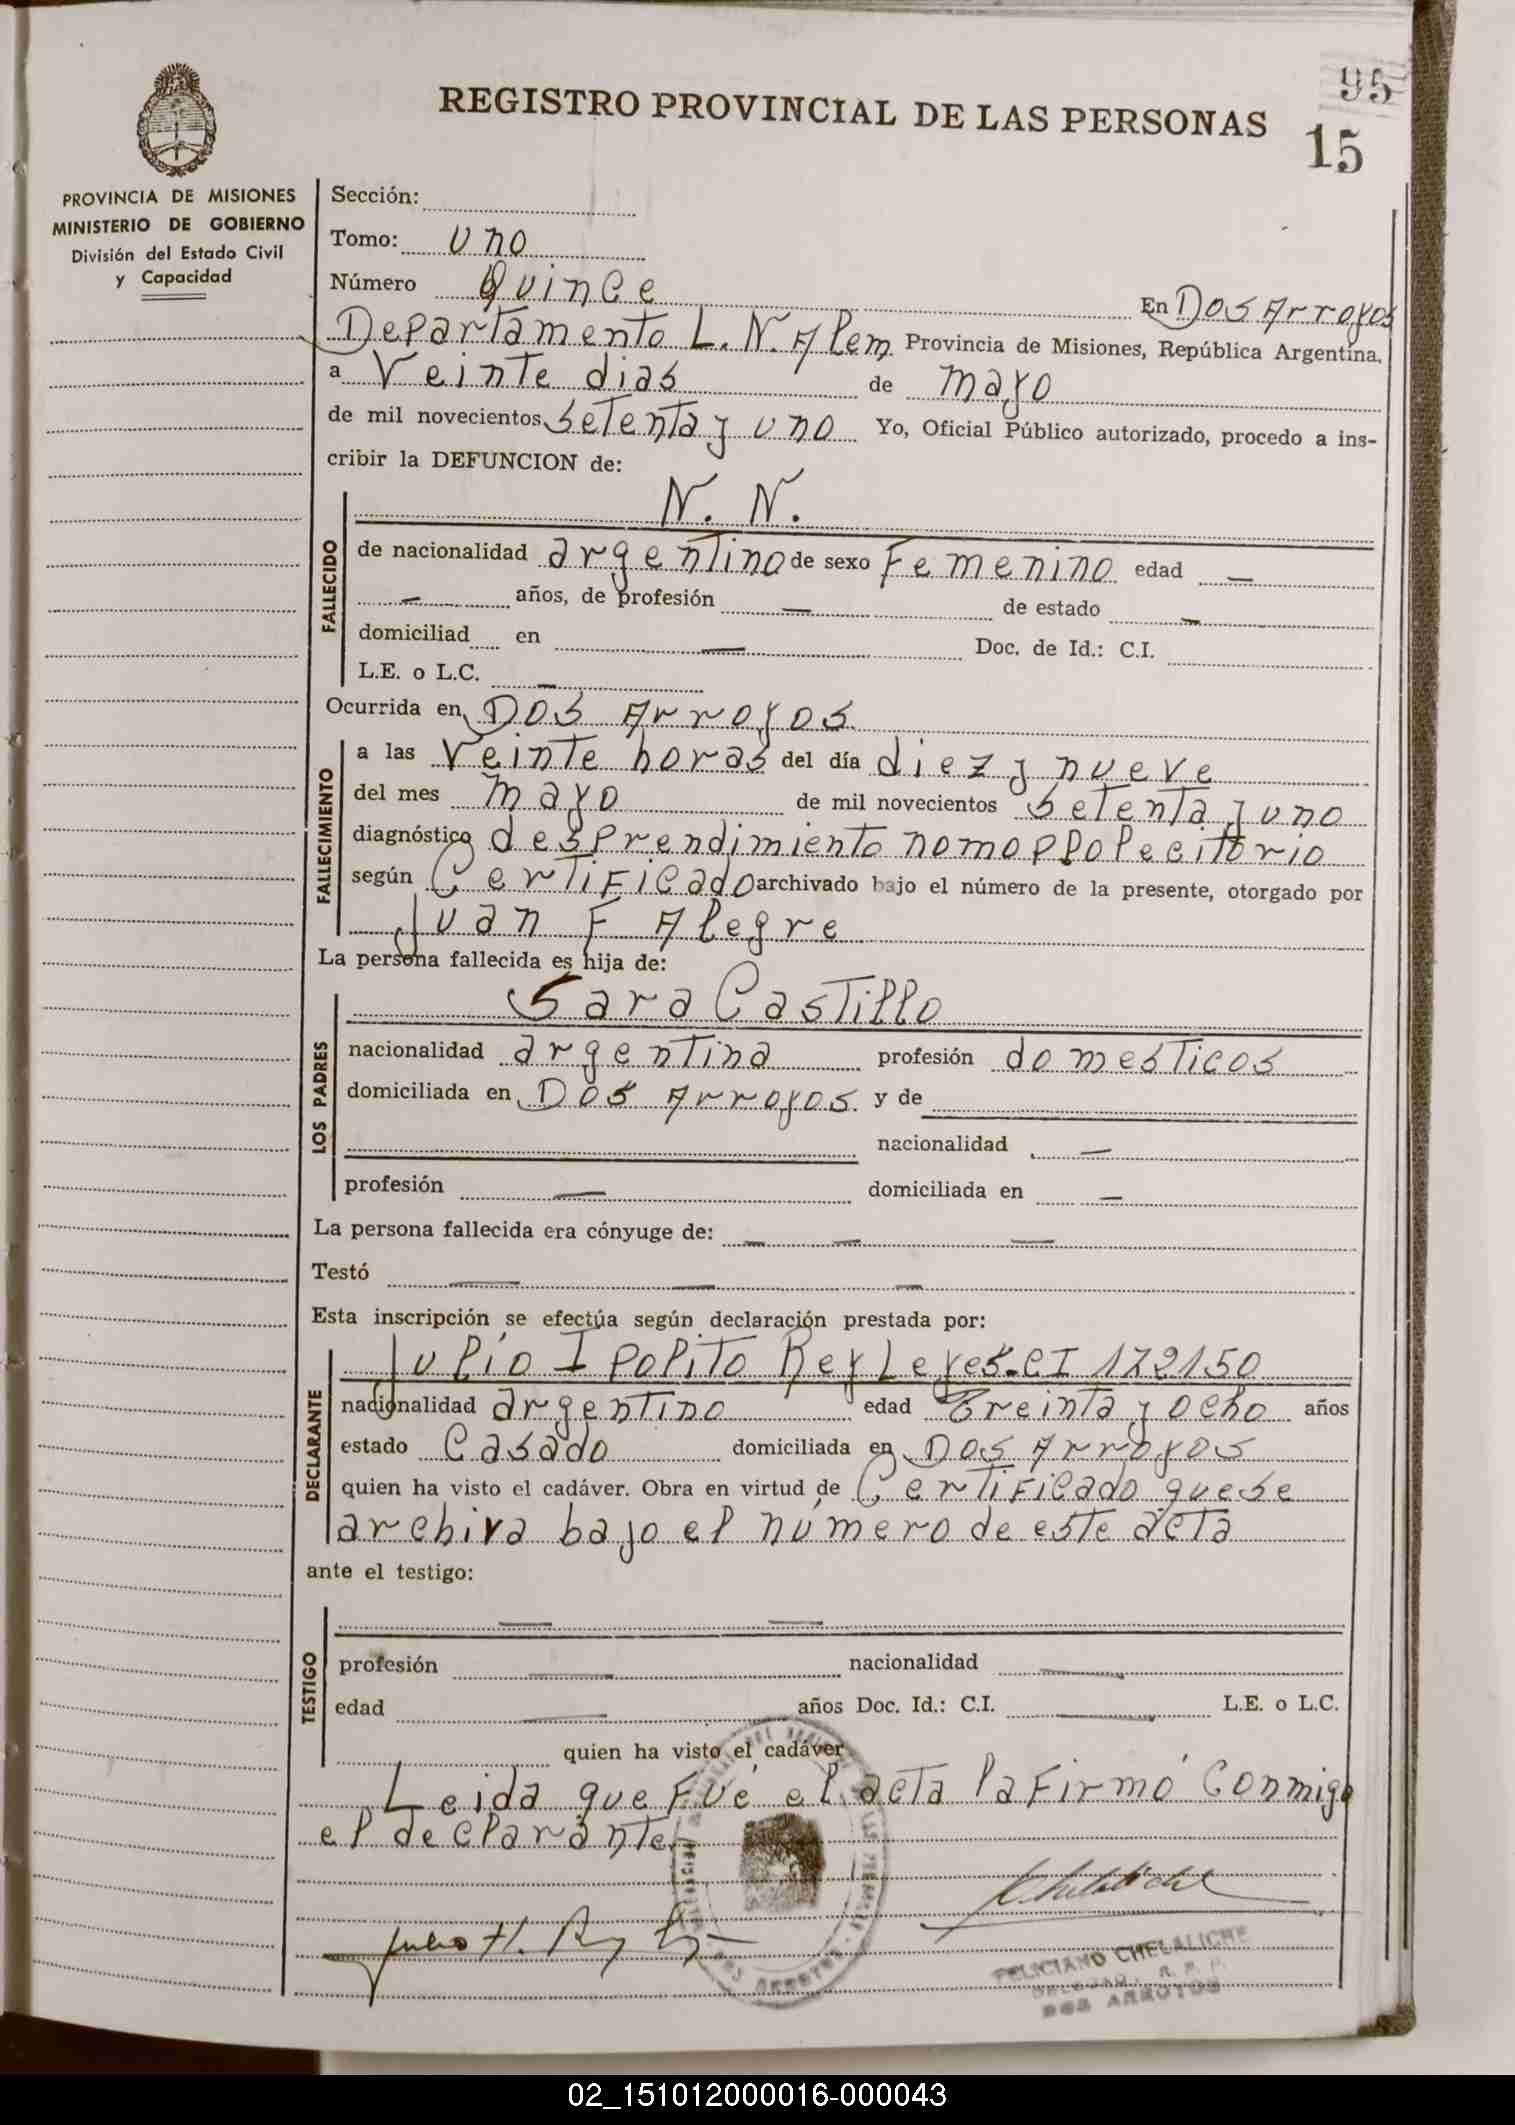 95
REGISTRO PROVINCIAL DE LAS PERSONAS
15
PROVINCIA DE MISIONES
MINISTERIO DE GOBIERNO
División del Estado Civil
y Capacidad
Sección:
Tomo: uno
Número Quince
En Dos Arroyos
Departamento L. N. Alem. Provincia de Misiones, República Argentina,
a Veinte dias de mayo
de mil novecientos setenta y uno Yo, Oficial Público autorizado, procedo a ins-
cribir la DEFUNCION de:
N. N.
FALLECIDO
de nacionalidad argentino de sexo Femenino edad —
— años, de profesión — de estado —
domiciliad en — Doc. de Id.: C.I.
L.E. o L.C. —
Ocurrida en Dos Arroyos
FALLECIMIENTO
a las Veinte horas del día diez y nueve
del mes mayo de mil novecientos setenta y uno
diagnóstico desprendimiento
según Certificado archivado bajo el número de la presente, otorgado por
Juan F Alegre
La persona fallecida es hija de:
LOS PADRES
Sara Castillo
nacionalidad argentina profesión domesticos
domiciliada en Dos Arroyos. y de
nacionalidad —
profesión — domiciliada en —
La persona fallecida era cónyuge de: — — —
Testó — — —
Esta inscripción se efectúa según declaración prestada por:
DECLARANTE
Julio Ipolito Rey Leyes.CI 172150
nacionalidad argentino edad Treinta y ocho años
estado Casado domiciliada en Dos Arroyos
quien ha visto el cadáver. Obra en virtud de Certificado que se
archiva bajo el número de este acta
ante el testigo:
TESTIGO
— —
profesión — nacionalidad —
edad — años Doc. Id.: C.I. — L.E. o L.C.
quien ha visto el cadáver
Leida que Fué el acta la Firmó Conmigo
el declarante
Julio H. Rey
FELICIANO CHELALICHE
DOS ARROYOS
02_151012000016-000043